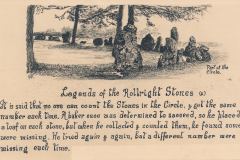 Part of the
Circle.
Legends of the Rollright Stones (2)
It is said that no one can count the Stones in the Circle, & get the same
number each time. A baker once was determined to succeed, so he placed
a loaf on each stone, but when he collected & counted them, he found some
were missing. He tried again & again, but a different number were
missing each time.